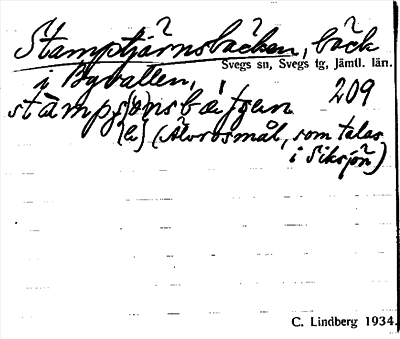 Stamptjärnsbäcken, bäck
Svegs sn, Svegs tg, Jämtl. län.
i Byvallen,
209
(Älvrosmål, som talas
i Siksjön)
C. Lindberg 1934.